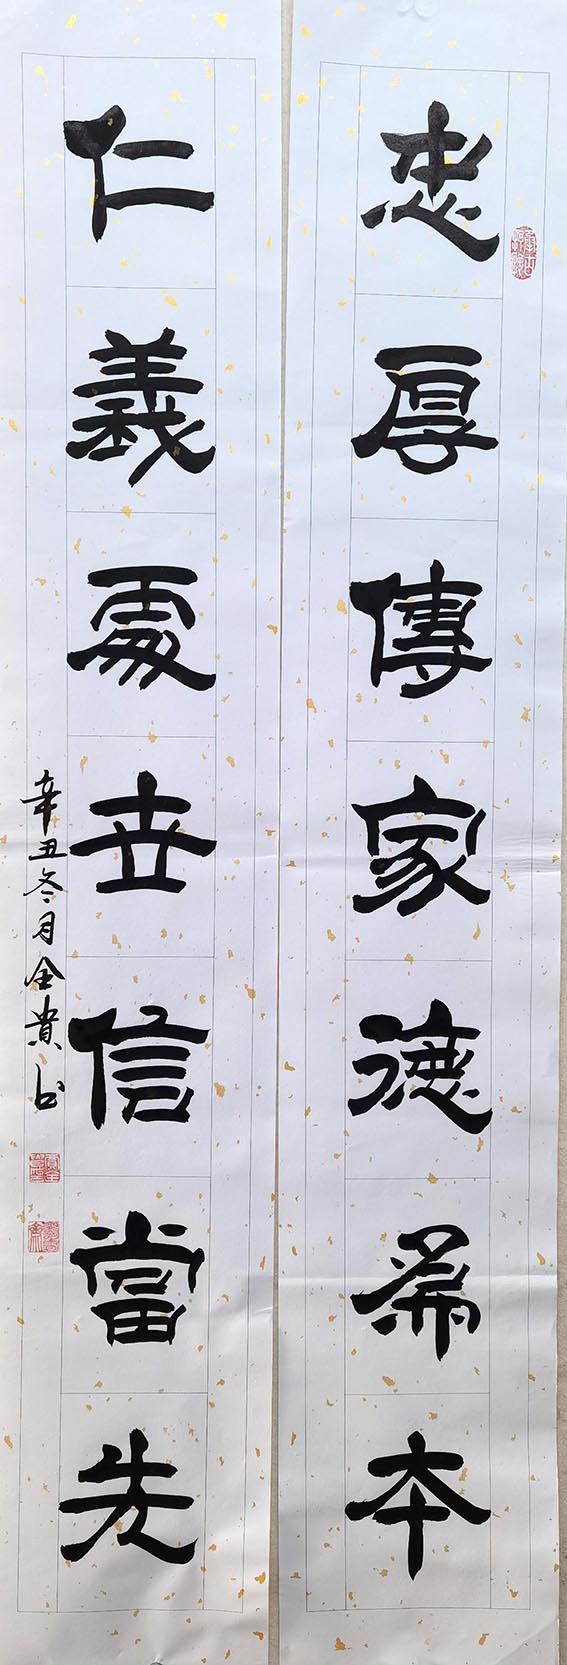 忠厚傳家德為本
仁義處世信當先
辛丑冬月全貴书